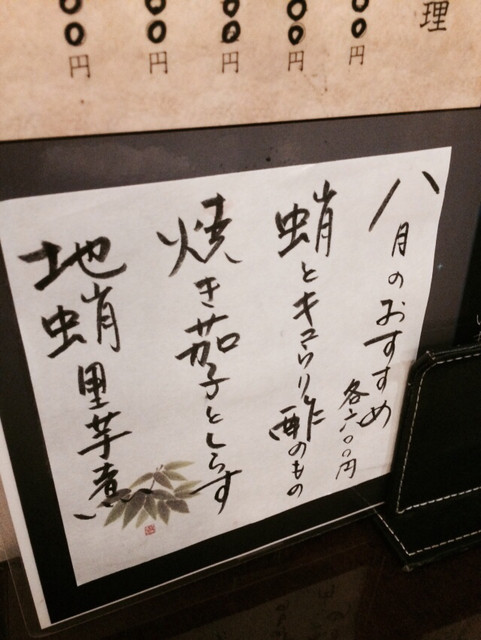 理
〇〇円
〇〇円
〇〇円
〇〇円
〇〇円
八月のおすすめ
各六〇〇円
蛸とキュウリ酢のもの
焼き茄子としらす
地蛸里芋煮